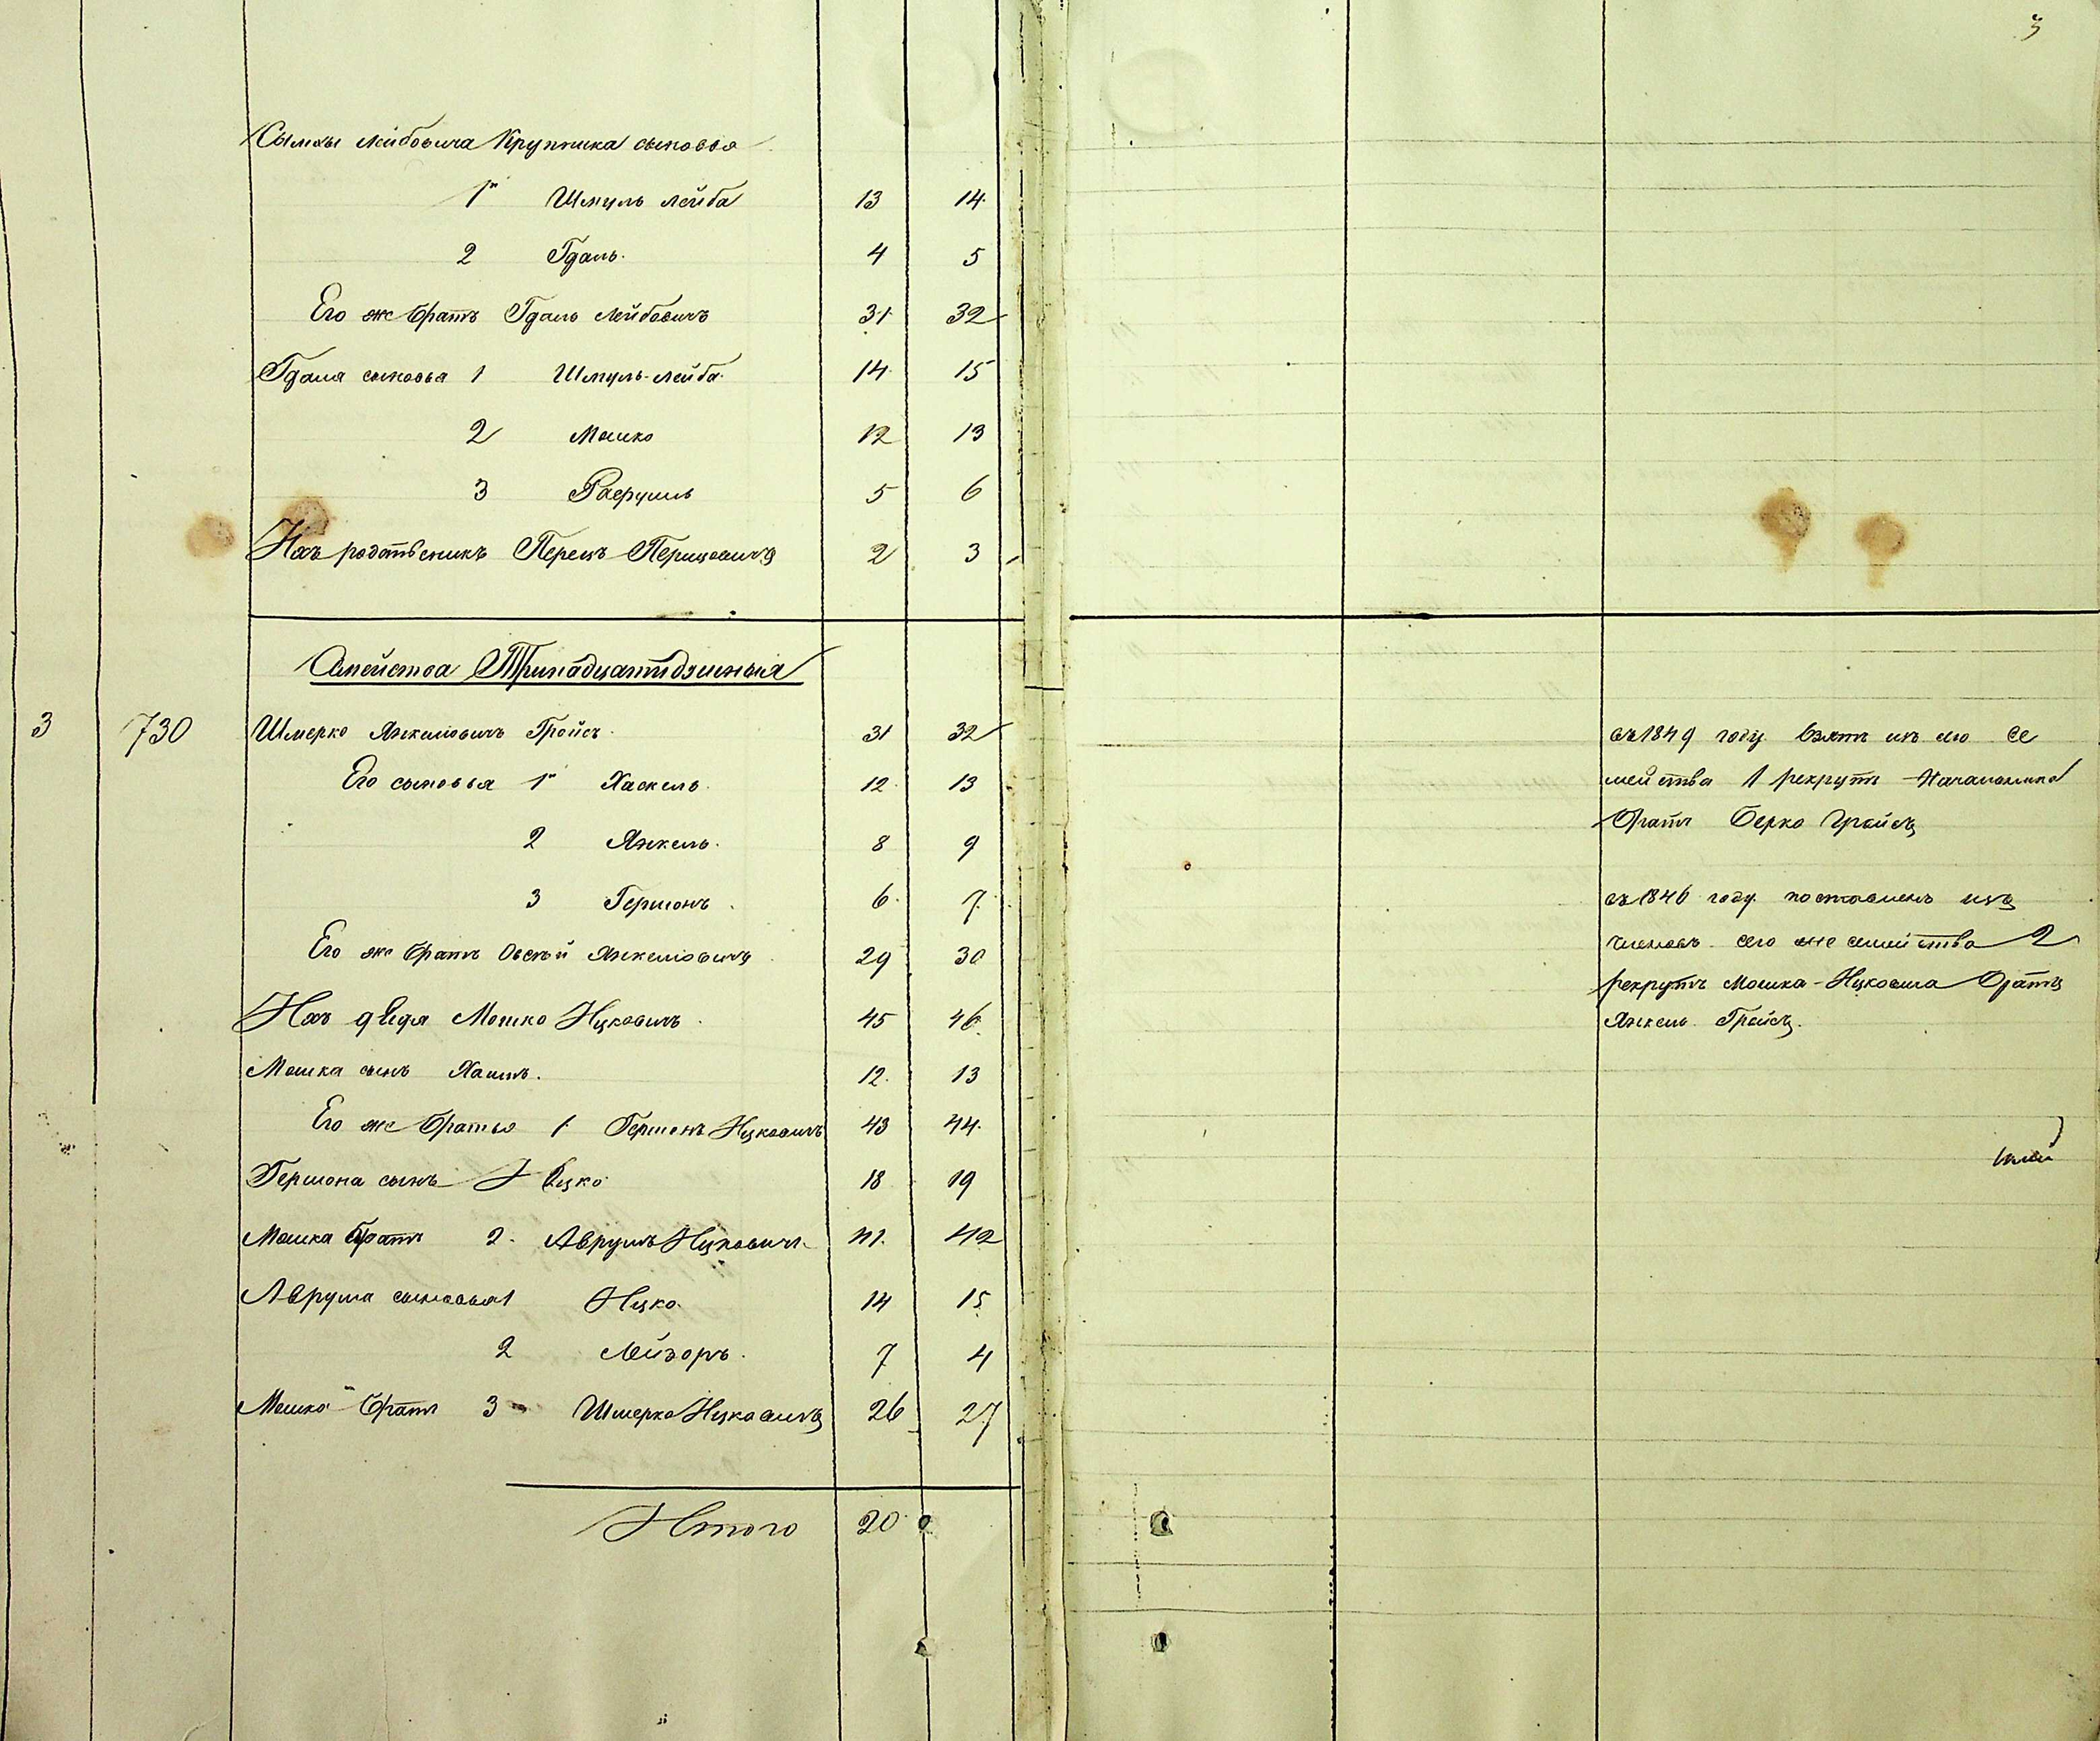 3
Сымхы Лейбовича Крупника сыновья
1й Шмуль Лейба 13 14
2 Гдаль 4 5
Его же братъ Гдаль Лейбовичъ 31 32
Гдаля сыновья 1 Шмуль-Лейба 14 15
2 Мошко 12 13
3 5 6
Ихъ родственикъ Перецъ Перцовичъ 2 3
Семейства Тринадцатидушныя
3 730 Шмерко Янкелiовичъ Гройсъ 31 32
Его сыновья 1й Хаскель 12 13
2 Янкель 8 9
3 Гершонъ 6 7
Его же братъ Овсѣй Янкелiовичъ 29 30
Ихъ дядя Мошко Ицковичъ 45 46
Мошка сынъ Хаимъ 12 13
Его же братья 1 Гершонъ Ицковичъ 43 44
Гершона сынъ Ицко 18 19
Мошка братъ 2 Аврумъ Ицковичъ 41 42
Аврума сыновья 1 Ицко 14 15
2 Лейзоръ 7 4
Мошко братъ 3 Шмерко Ицковичъ 26 27
Итого 20
въ 1849 году взятъ изъ его се
мейства 1 рекрутъ Начальника
братъ Берко Гройсъ
въ 1846 году поставленъ изъ
членовъ сего же семейства 2
рекрутъ Мошка Ицковича братъ
Янкель Гройсъ